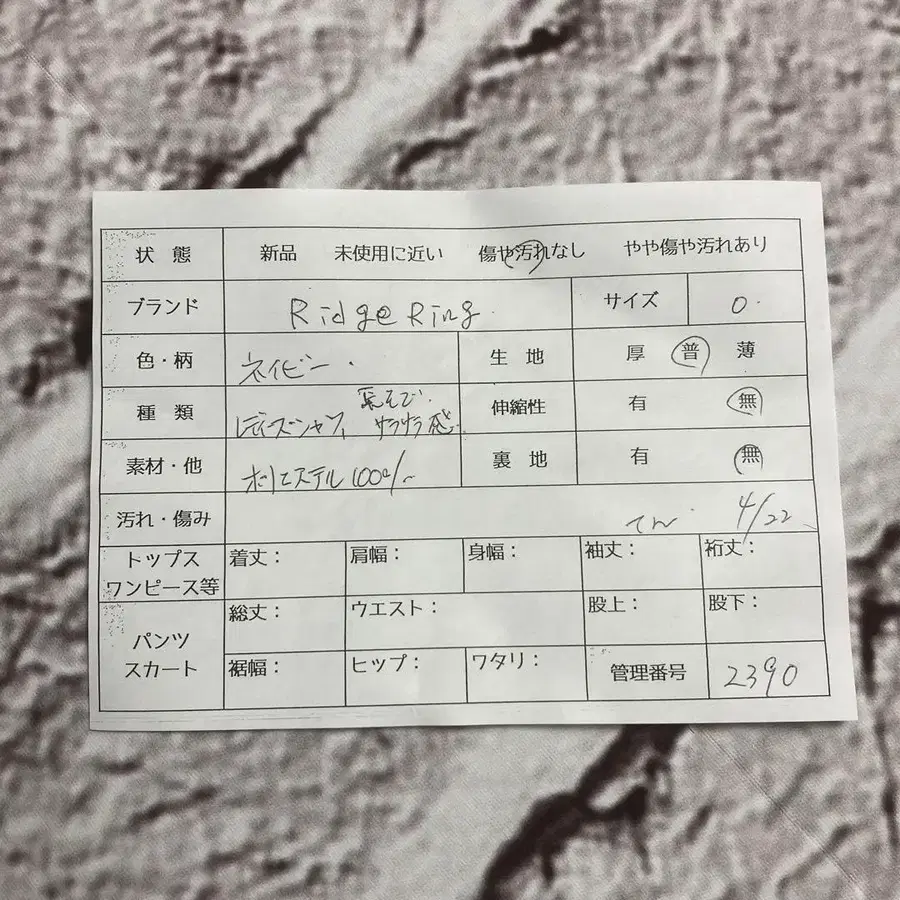 状態 新品 未使用に近い 傷や汚れなし やや傷や汚れあり
ブランド Ridge Ring サイズ 0.
色・柄 ネイビー. 生地 厚 普 薄
種類 レディスシャツ 長そで. サラサラ感 伸縮性 有 無
素材・他 ポリエステル100% 裏地 有 無
汚れ・傷み てん. 4/22
トップス ワンピース等 着丈: 肩幅: 身幅: 袖丈: 裄丈:
パンツ スカート 総丈: ウエスト: 股上: 股下:
裾幅: ヒップ: ワタリ: 管理番号 2390